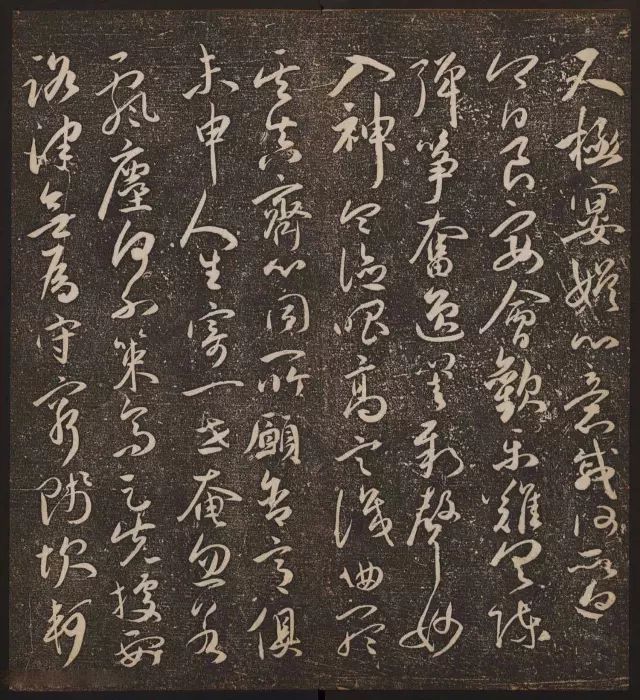 尺極宴娛心意戚何所迫
今日良宴會歡樂難具陳
彈箏奮逸響新聲妙
入神令德唱高言識曲聽
其真齊心同所願含意俱
未申人生寄一世奄忽若
飆塵何不策高足先據要
路津無為守窮賤坎軻